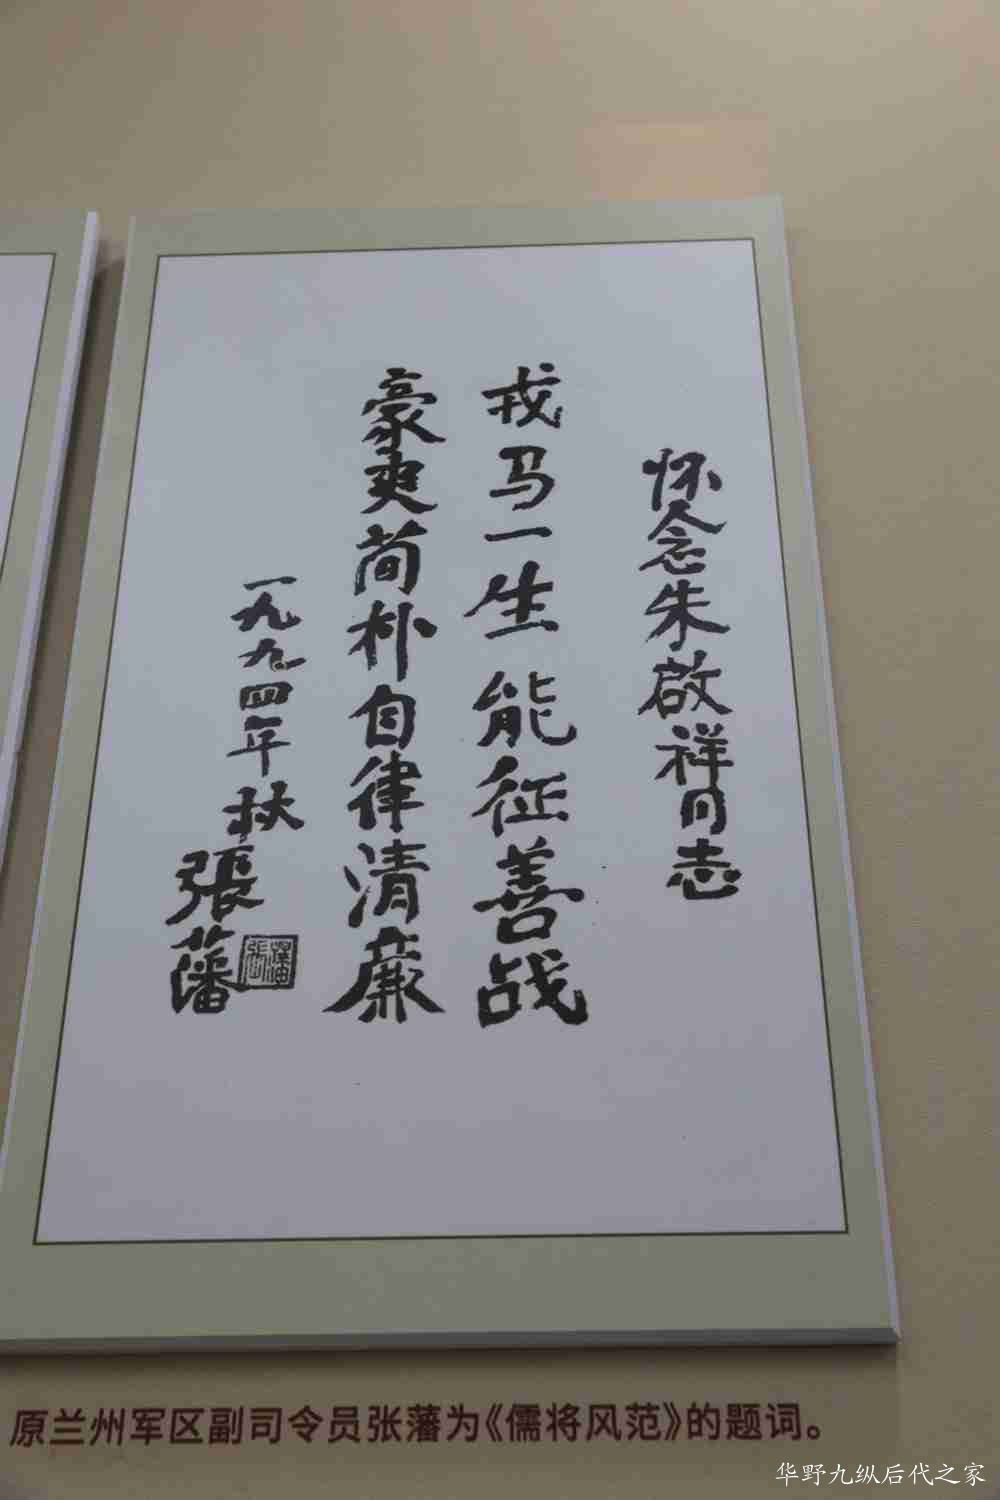 怀念朱啟祥同志
戎马一生能征善战
豪爽简朴自律清廉
一九九四年秋
張藩
原兰州军区副司令员张藩为《儒将风范》的题词。
华野九纵后代之家